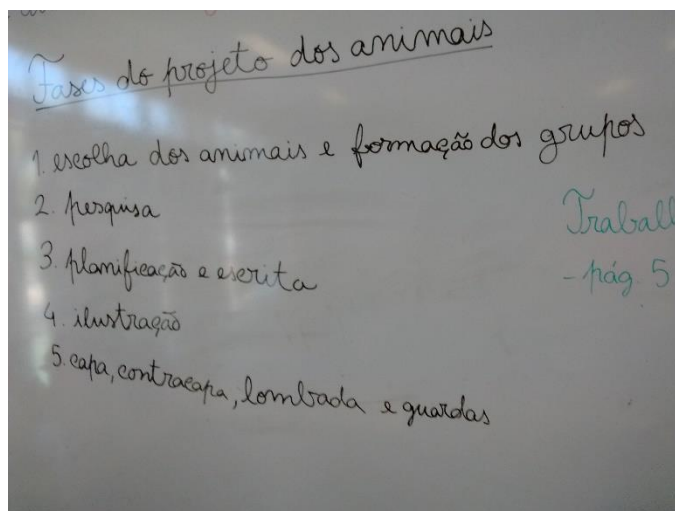 Fases do projeto dos animais
1. escolha dos animais e formação dos grupos
2. pesquisa
3. planificação e escrita
4. ilustração
5. capa, contracapa, lombada e guardas
- pág. 5